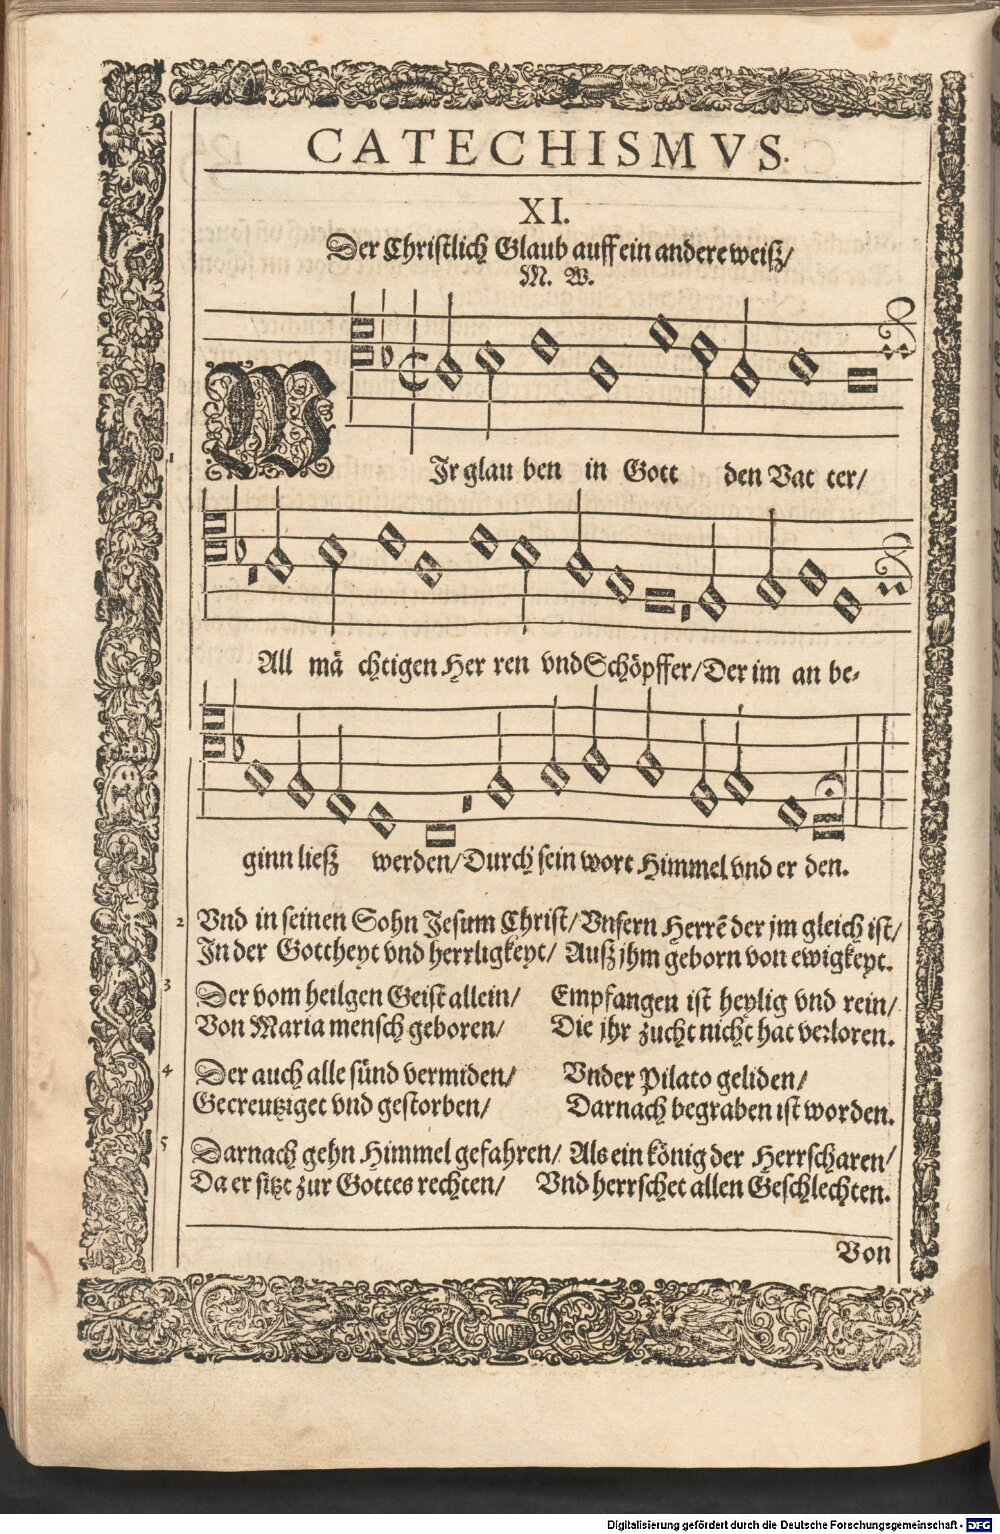 CATECHISMVS.
XI.
Der Christlich Glaub auff ein andere weiß/
M. W.
WIr glau ben in Gott den Vat ter/
All mä chtigen Her ren vnd Schöpffer/ Der im an be-
ginn ließ werden/ Durch sein wort Himmel vnd er den.
2 Vnd in seinen Sohn Jesum Christ/ Vnsern Herrẽ der jm gleich ist/
In der Gottheyt vnd herrligkeyt/ Auß jhm geborn von ewigkeyt.
3 Der vom heilgen Geist allein/ Empfangen ist heylig vnd rein/
Von Maria mensch geboren/ Die jhr zucht nicht hat verloren.
4 Der auch alle sünd vermiden/ Vnder Pilato geliden/
Gecreutziget vnd gestorben/ Darnach begraben ist worden.
5 Darnach gehn Himmel gefahren/ Als ein könig der Herrscharen/
Da er sitzt zur Gottes rechten/ Vnd herrschet allen Geschlechten.
Von
Digitalisierung gefördert durch die Deutsche Forschungsgemeinschaft - DFG